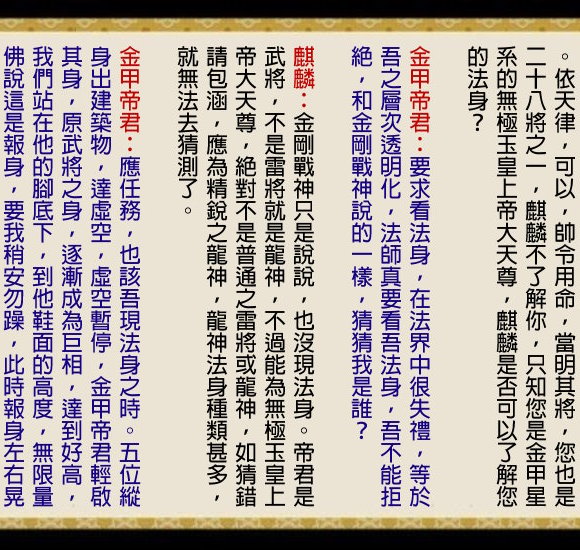 。依天律，可以，帥令用命，當明其將，您也是
二十八將之一，麒麟不了解你，只知您是金甲星
系的無極玉皇上帝大天尊，麒麟是否可以了解您
的法身？
金甲帝君：要求看法身，在法界中很失禮，等於
吾之層次透明化，法師真要看吾法身，吾不能拒
絕，和金剛戰神說的一樣，猜猜我是誰？
麒麟：金剛戰神只是說說，也沒現法身。帝君是
武將，不是雷將就是龍神，不過能為無極玉皇上
帝大天尊，絕對不是普通之雷將或龍神，如猜錯
請包涵，應為精銳之龍神，龍神法身種類甚多，
就無法去猜測了。
金甲帝君：應任務，也該吾現法身之時。五位縱
身出建築物，達虛空，虛空暫停，金甲帝君輕啟
其身，原武將之身，逐漸成為巨相，達到好高，
我們站在他的腳底下，到他鞋面的高度，無限量
佛說這是報身，要我稍安勿躁，此時報身左右晃